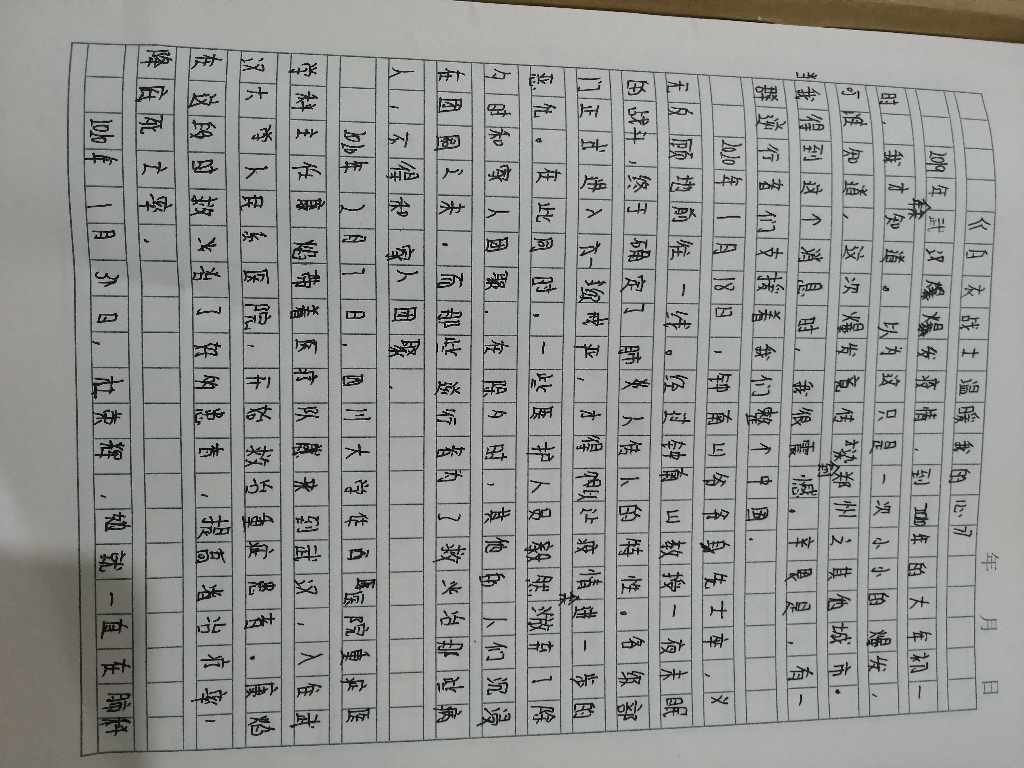 年 月 日
白衣战士温暖我的心房
2019年武汉爆发疫情,到2020年的大年初一
时,我才知道。以为这只是一次小小的爆发,
可谁知道,这次爆发竟传染到郑州之其他城市。
当我得到这个消息时,我很震憾。幸是是,有一
群逆行者们支撑着我们整个中国.
2020年1月18日,钟南山爷爷身先士卒,义
无反顾地前往一线。经过钟南山教授一夜未眠
的战斗,终于确定了肺炎人传人的特性。各级部
门正式进入一级戒严,才得以让疫情未进一步的
恶化。在此同时,一些医护人员毅然放弃了除
夕时和家人团聚.在除夕时,其他的人们沉浸
在团圆之末.而部些逆行者为了救火治那边病
人,不得和家人团聚.
2020年2月7日,四川大学华西医院重症医
学科主任康焰带着医疗队来到武汉,入住武
汉大学人民东医院,开始救治重症患者.康焰
在这段时救火者了好多患者,提高者治疗率,
降官死亡率.
2020年1月31日,杜荣辉,她就一直在肺科